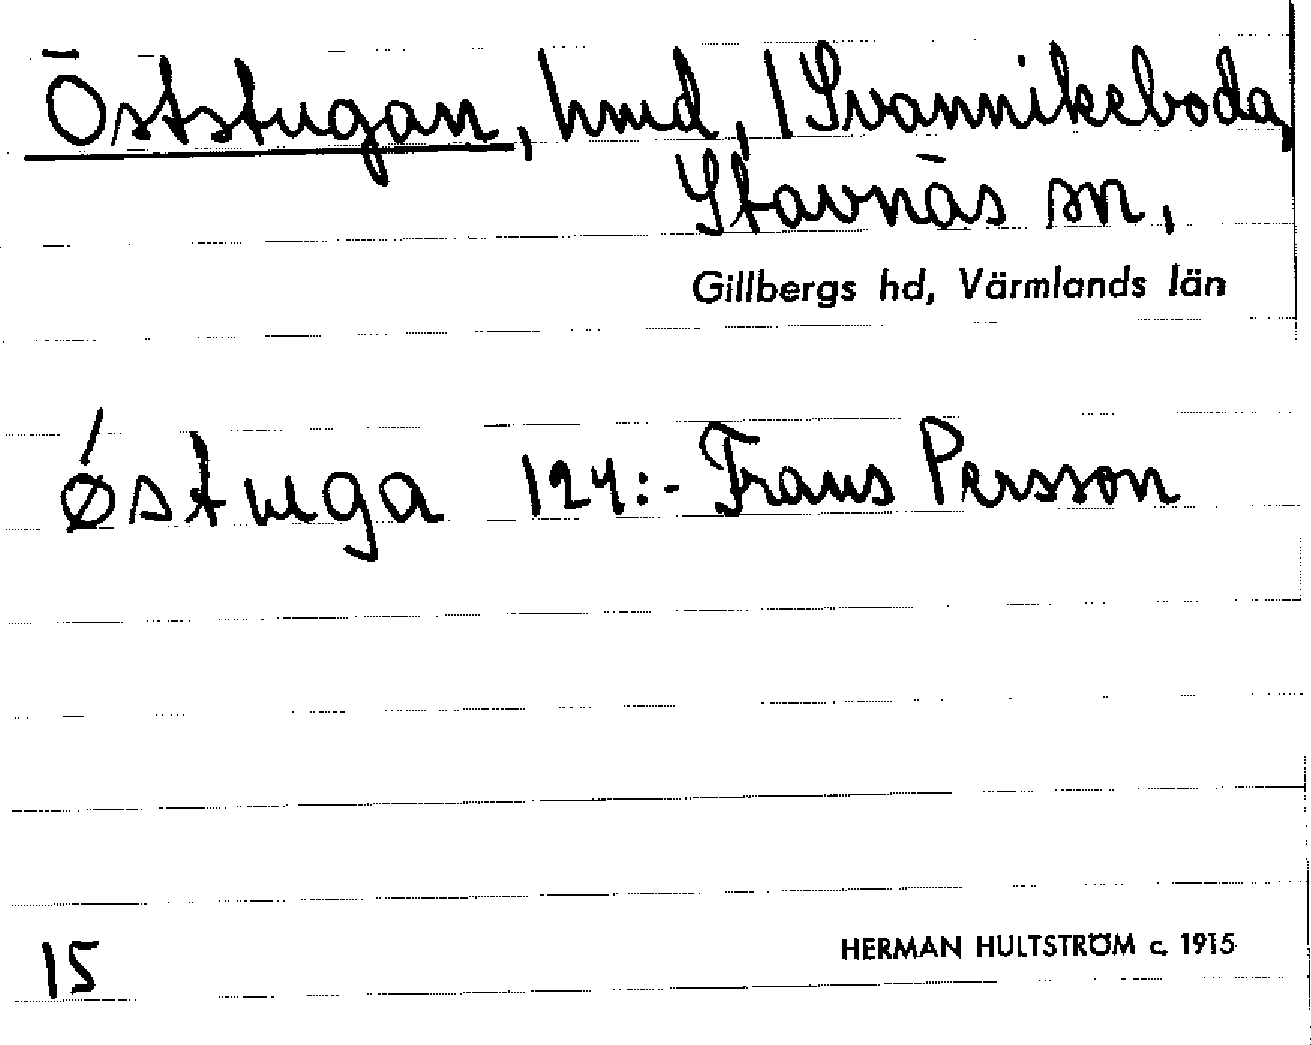 Öststugan, hmd, / Svannikeboda,
Stavnäs sn,
Gillbergs hd, Värmlands län
ǿstuga 124:- Frans Persson
15
HERMAN HULTSTRÖM c. 1915